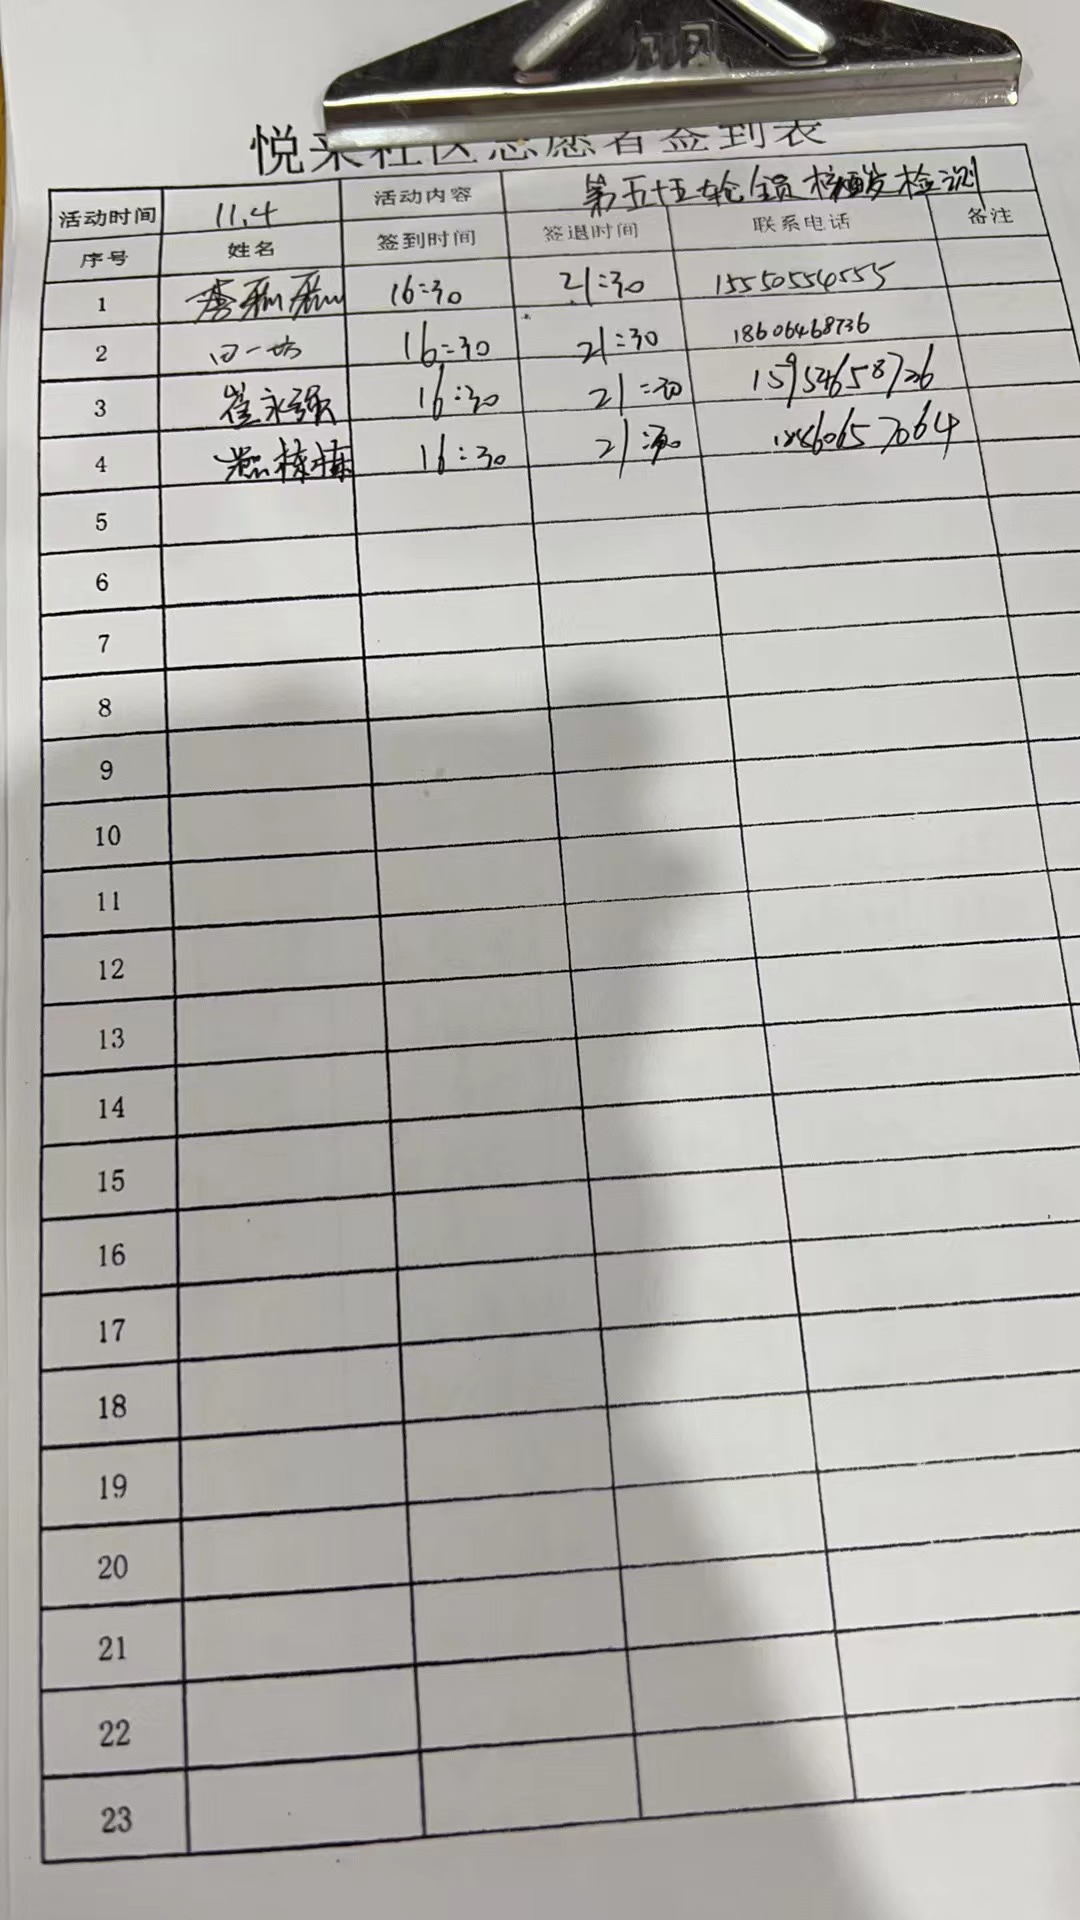 悦来社区志愿者签到表
活动时间 11.4 活动内容 第五十五轮全员核酸检测
序号 姓名 签到时间 签退时间 联系电话 备注
1 16:30 21:30 15550554555
2 16:30 21:30 18606468736
3 崔永强 16:30 21:30
4 16:30 21:30
5
6
7
8
9
10
11
12
13
14
15
16
17
18
19
20
21
22
23